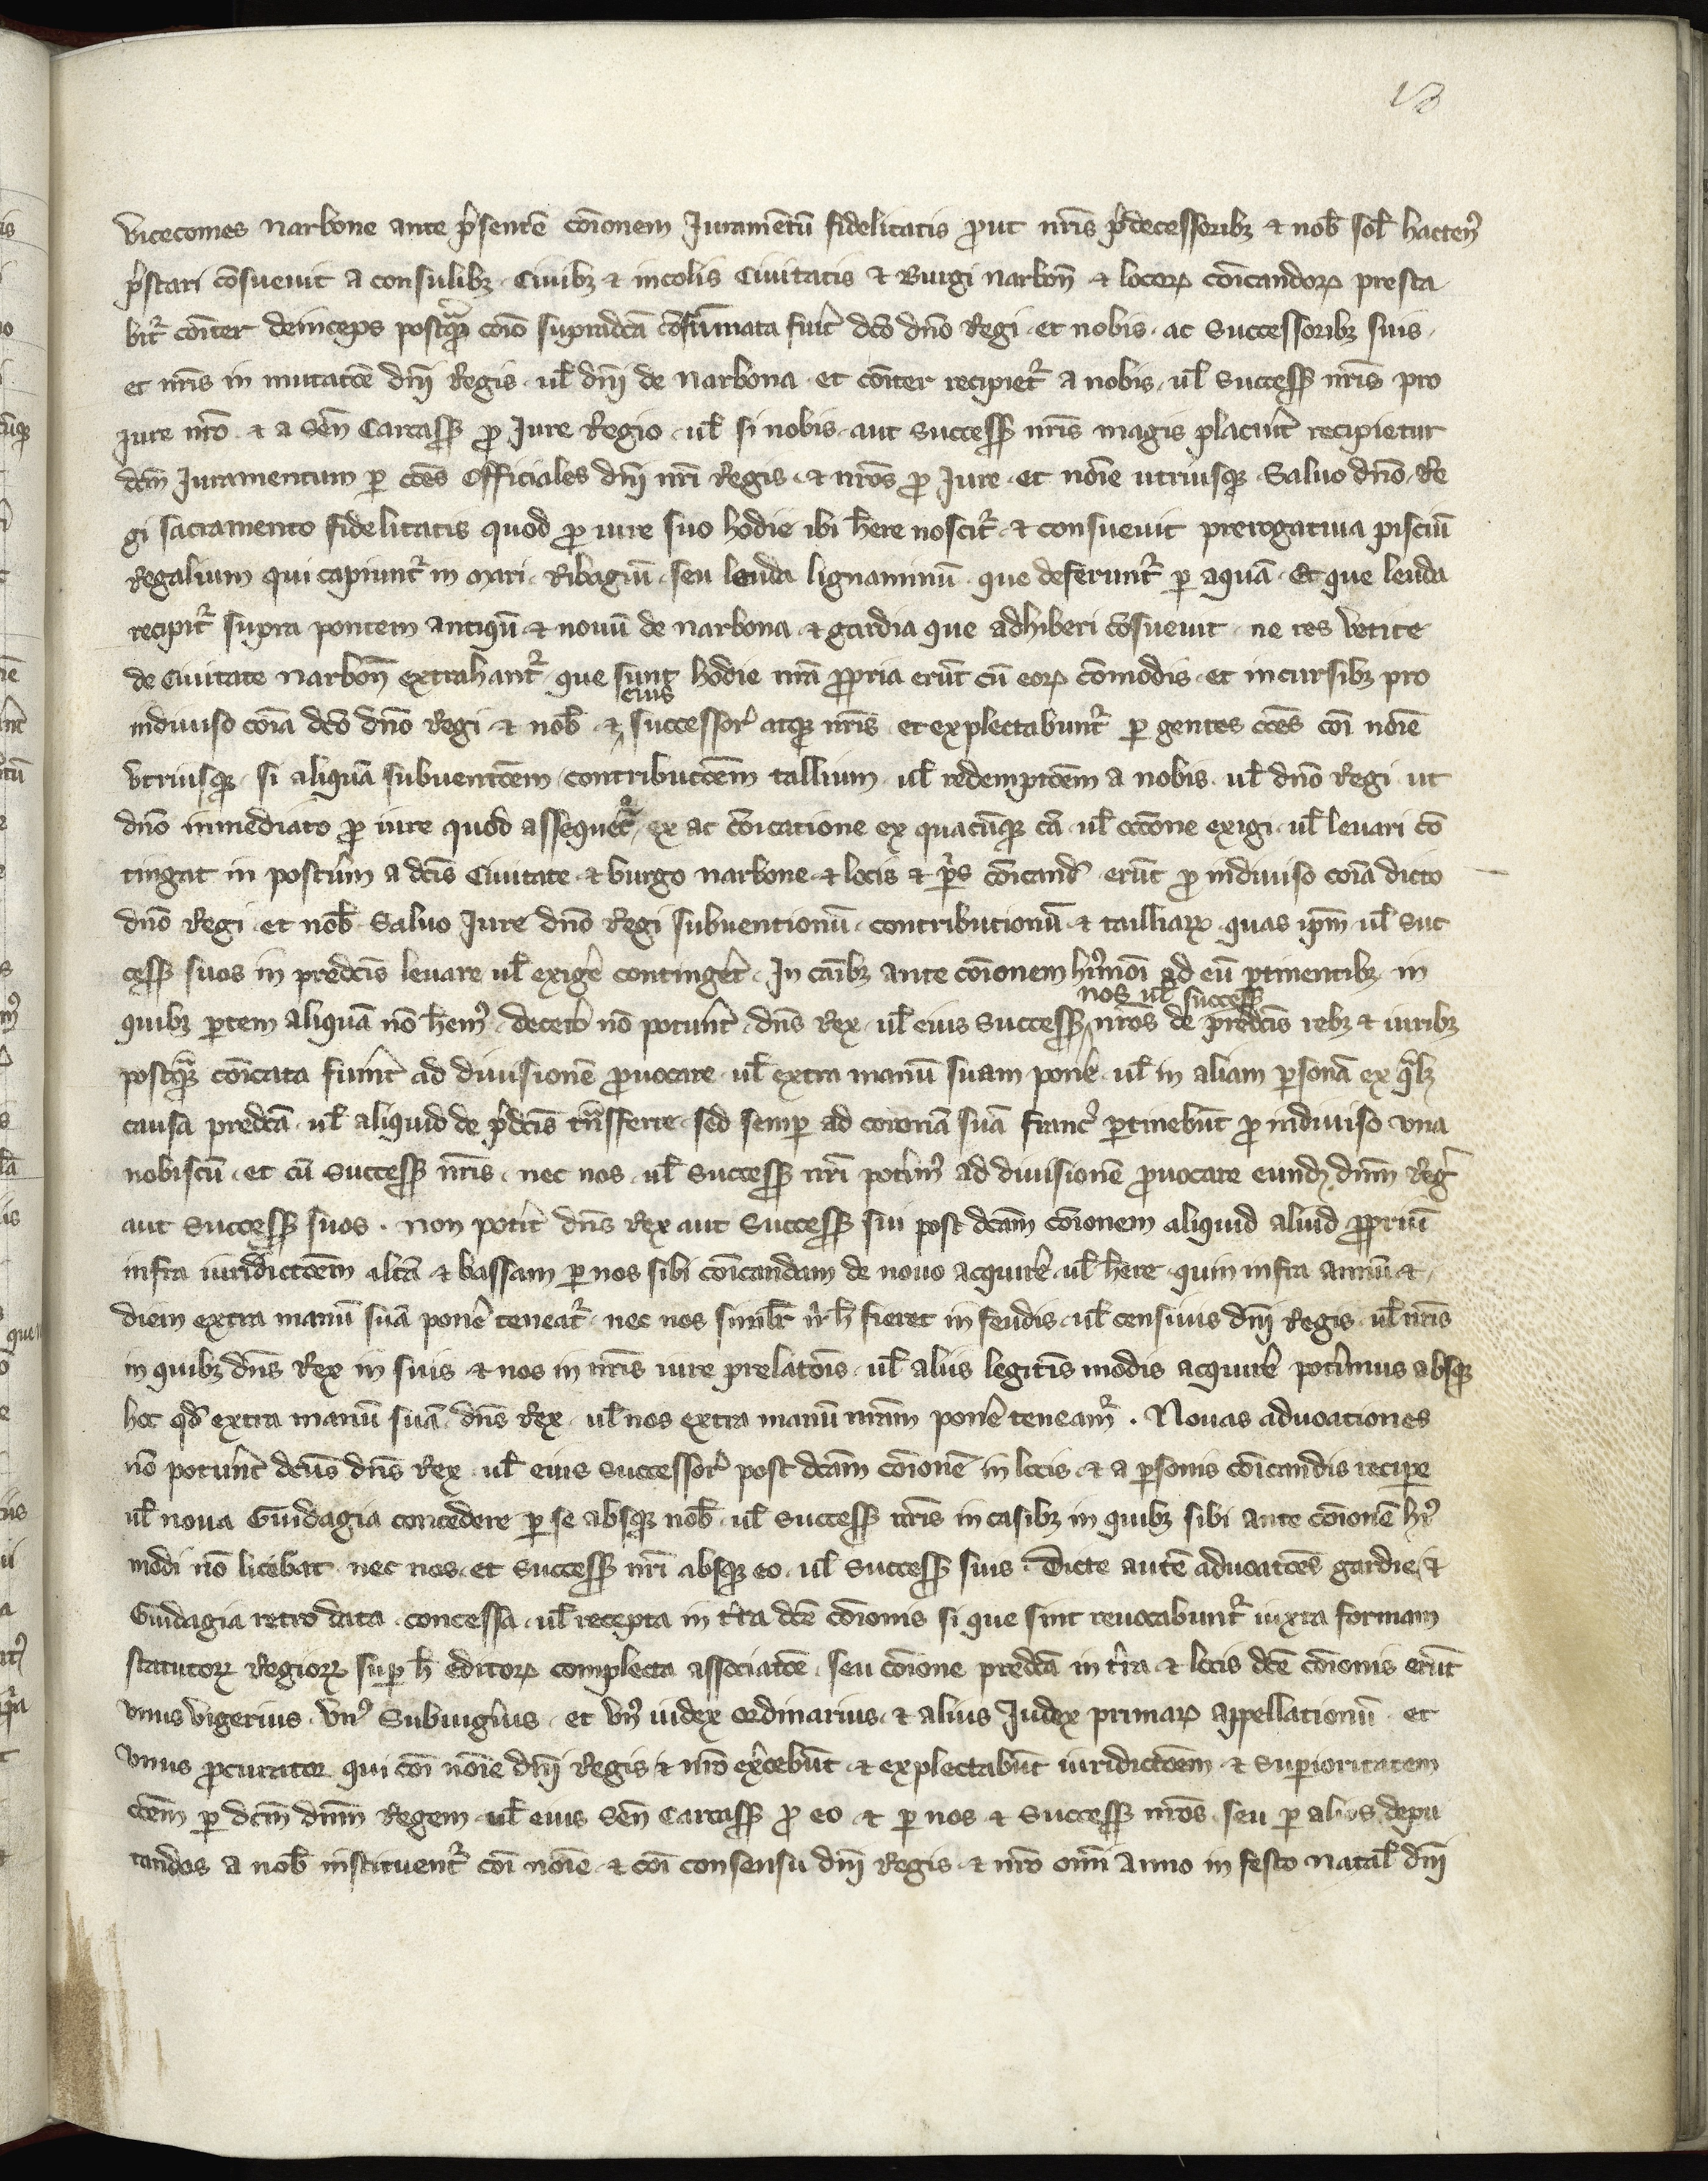 13
vicecomes narbone ante p̃sentē cōionem Juramētū fidelitatis ꝓut nr̄is p̃decessoribꝫ ⁊ nob̄ sol̄ hacten᾿
p̃stari cōsuevit a consulibꝫ Ciuibꝫ ⁊ incolis Ciuitatis ⁊ Burgi narbon̄ ⁊ locorꝝ cōicandorꝝ presta
bit᾿ cōiter deinceps postꝙ̃ cōio supradc̄a cōsūmata fuit̄ dc̄o dn̄o Regi et nobis ac Successoribꝫ suis
et nr̄is in mutatōe dn̄i Regis ul̄ dn̄i de narbona et cōiter recipiet᾿ a nobis ul̄ Success̄ nr̄is pro
jure nr̄o ⁊ a Sen̄ Carcass̄ ꝓ Jure Regio ul̄ si nobis aut Success̄ nr̄is magis placuit̄ recipietur
dc̄m Juramentum ꝑ cōes Officiales dn̄i nr̄i Regis ⁊ nr̄os ꝓ Jure et noīe utriusqꝫ Saluo dn̄o Re
gi sacramento fidelitatis quod ꝓ iure suo hodie ibi h̄ere noscit᾿ ⁊ consuevit prerogatiua pisciū
Regalium qui capiunt᾿ in mari Ribagiū seu leuda lignaminū que deferunt᾿ ꝑ aquā Et que leuda
recipit᾿ supra pontem antiqū ⁊ nouū de narbona ⁊ gardia que adhiberi cōsuevit ne res vetite
de Ciuitate narbon̄ extrahant᾿ que sunt hodie nr̄a ꝓpria erūt cū eorꝝ cōmodis et incursibꝫ pro
indiuiso cōia dc̄o dn̄o Regi ⁊ nob̄ ⁊ eius successor᾿ atqꝫ nr̄is et explectabunt᾿ ꝑ gentes cōes cōi noīe
vtriusqꝫ si aliquā subuentōem contributōem tallium ul̄ redemptōem a nobis ul̄ dn̄o Regi ut
dn̄o inmediato ꝓ iure quod assequet᾿ ex ac cōicatione ex quacūqꝫ cā ul̄ occōne exigi ul̄ leuari cō
tingat in post̄um a dc̄is Ciuitate ⁊ burgo narbone ⁊ locis ⁊ p̃is cōicand᾿ erūt ꝓ indiuiso cōia dicto
dn̄o Regi et nob̄ Saluo Jure dn̄o Regi subuentionū contributionū ⁊ tailliarꝝ quas ip̄m ul̄ suc
cess̄ suos in predc̄is leuare ul̄ exiḡe continḡet In cāibꝫ ante cōionem hui᾿moī ad eū ꝑtinentibꝫ in
quibꝫ ꝑtem aliquā nō h̄em᾿ deceto nō potunt̄ dn̄s Rex ul̄ eius Success̄ nos ul̄ success̄ nr̄os de predc̄is rebꝫ ⁊ iuribꝫ
postꝙ̃ cōicata fuint̄ ad diuisionē ꝓuocare ul̄ extra manū suam pone᾿ ul̄ in aliam ꝑsonā ex q̃lꝫ
causa predc̄a ul̄ aliquid de p̃dc̄is tn̄sferre sed semꝑ ad coronā suā franc᾿ ꝑtinebūt ꝓ indiuiso vna
nobiscū et cū Success̄ nr̄is nec nos ul̄ Success̄ nr̄i potim᾿ ad diuisionē ꝓuocare eundꝫ dn̄m Reg᾿
aut Success̄ suos . non potit̄ dn̄s Rex aut Success̄ sui post dc̄am cōionem aliquid aliud ꝓpriū
infra iuridictōem altā ⁊ bassam ꝑ nos sibi cōicandam de nouo acquire᾿ ul̄ h̄ere quin infra annū ⁊
diem extra manū suā pone᾿ teneat᾿ nec nos simil̄r n᾿ h̄ fieret in feudis ul̄ censiuis dn̄i Regis ul̄ nr̄is
in quibꝫ dn̄s Rex in suis ⁊ nos in nr̄is iure prelatōis ul̄ aliis legitīs modis acquire᾿ potimus absqꝫ
hoc qd̄ extra manū suā dn̄s Rex ul̄ nos extra manū nr̄am pone᾿ teneam᾿ . Nouas aduoationes
nō potunt̄ dc̄us dn̄s Rex ul̄ eius Successor᾿ post dc̄am cōionē in locis ⁊ a ꝑsonis cōicandis reciꝑe
ul̄ noua Guidagia concedere ꝑ se absqꝫ nob̄ ul̄ Success̄ nr̄is in casibꝫ in quibꝫ sibi ante cōionē hi᾿
modi nō licebat nec nos et Success̄ nr̄i absqꝫ eo ul̄ Success̄ suis . Dicte autē aduoatōes gardie ⁊
Guidagia retro data concessa ul̄ recepta in tr̄a dc̄e cōionis si que sint reuocabunt᾿ iuxta formam
statutorꝝ Regiorꝝ suꝑ h̄ editorꝝ completa associatōe seu cōione predc̄a in tr̄ra ⁊ locis dc̄e cōionis erūt
vnus vigerius vn᾿ Subuig̃ius et vn᾿ iudex ordinarius ⁊ alius Judex primarꝝ appellationū et
vnus ꝓcurator qui cōi noīe dn̄i Regis ⁊ nr̄o ex̃cebūt ⁊ explectabūt iuridictōem ⁊ Suꝑioritatem
cōem ꝑ dc̄m dn̄m Regem ul̄ eius Sen̄ Carcass̄ ꝓ eo ⁊ ꝑ nos ⁊ Success̄ nr̄os seu ꝑ alios depu
tandos a nob̄ instituent᾿ cōi noīe ⁊ cōi consensu dn̄i Regis ⁊ nr̄o om̄i anno in festo natal̄ dn̄i